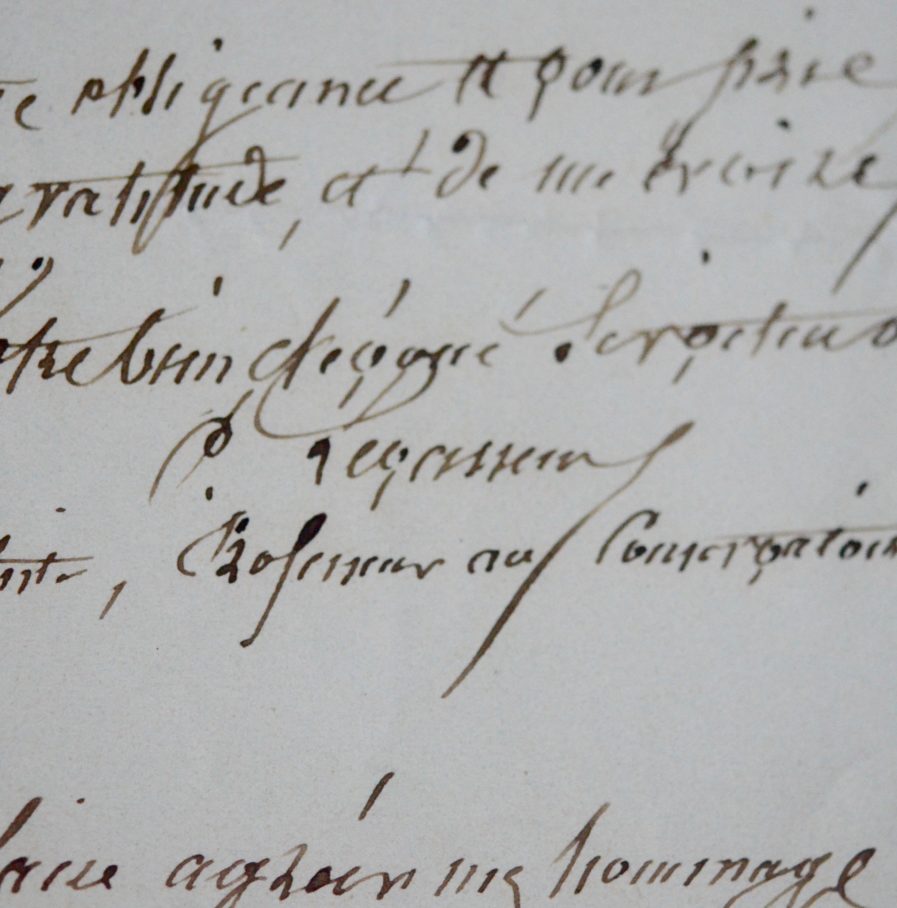 obligeance et pour
gratitude, et de me croire,
tre bien dévoué Serviteur
P. Levasseur
Professeur au Conservatoi
agréer mes hommage